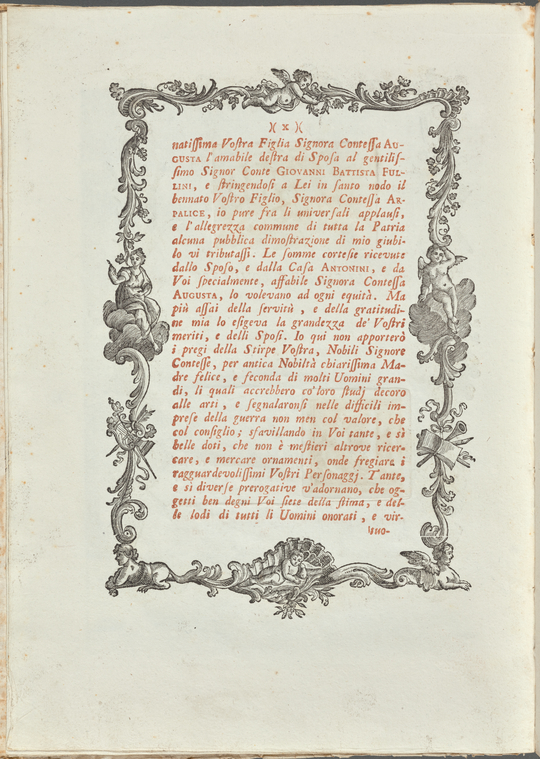 )( x )(
natiſſima Voſtra Figlia Signora Conteſſa AU-
GUSTA l'amabile deſtra di Spoſa al gentiliſ-
ſimo Signor Conte GIOVANNI BATTISTA FUL-
LINI, e ſtringendoſi a Lei in ſanto nodo il
bennato Voſtro Figlio, Signora Conteſſa AR-
PALICE, io pure fra li univerſali applauſi,
e l'allegrezza commune di tutta la Patria
alcuna pubblica dimoſtrazione di mio giubi-
lo vi tributaſſi. Le ſomme corteſie ricevute
dallo Spoſo, e dalla Caſa ANTONINI, e da
Voi ſpecialmente, affabile Signora Conteſſa
AUGUSTA, lo volevano ad ogni equità. Ma
più aſſai della ſervitù, e della gratitudi-
ne mia lo eſigeva la grandezza de' Voſtri
meriti, e delli Spoſi. Io qui non apporterò
i pregi della Stirpe Voſtra, Nobili Signore
Conteſſe, per antica Nobiltà chiariſſima Ma-
dre felice, e feconda di molti Uomini gran-
di, li quali accrebbero co'loro ſtudj decoro
alle arti, e ſegnalaronſi nelle difficili im-
preſe della guerra non men col valore, che
col conſiglio; sfavillando in Voi tante, e sì
belle doti, che non è meſtieri altrove ricer-
care, e mercare ornamenti, onde fregiare i
ragguardevoliſſimi Voſtri Perſonaggj. Tante,
e sì diverſe prerogative v'adornano, che og-
getti ben degni Voi ſiete della ſtima, e del-
le lodi di tutti li Uomini onorati, e vir-
tuo-